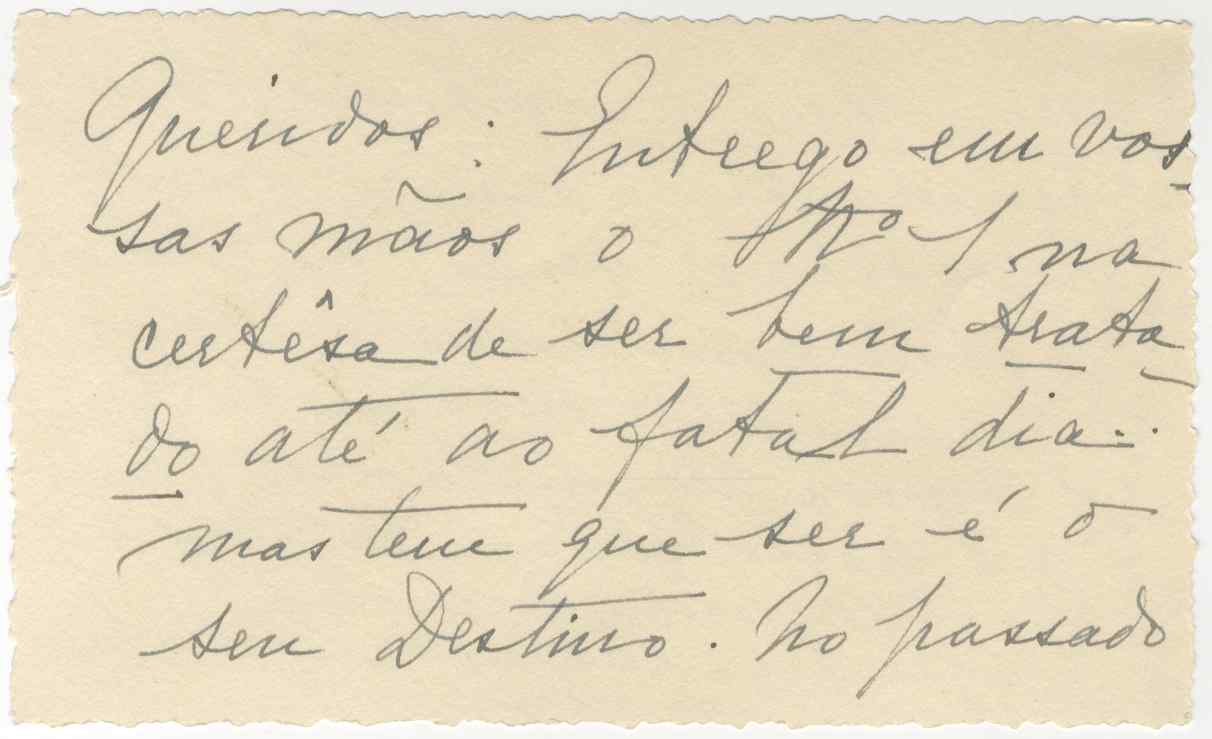 Queridos: Entrego em vos-
sas mãos o Nº 1 na
certêsa de ser bem trata-
do até ao fatal dia..
mas tem que ser é o
seu Destino. No passado